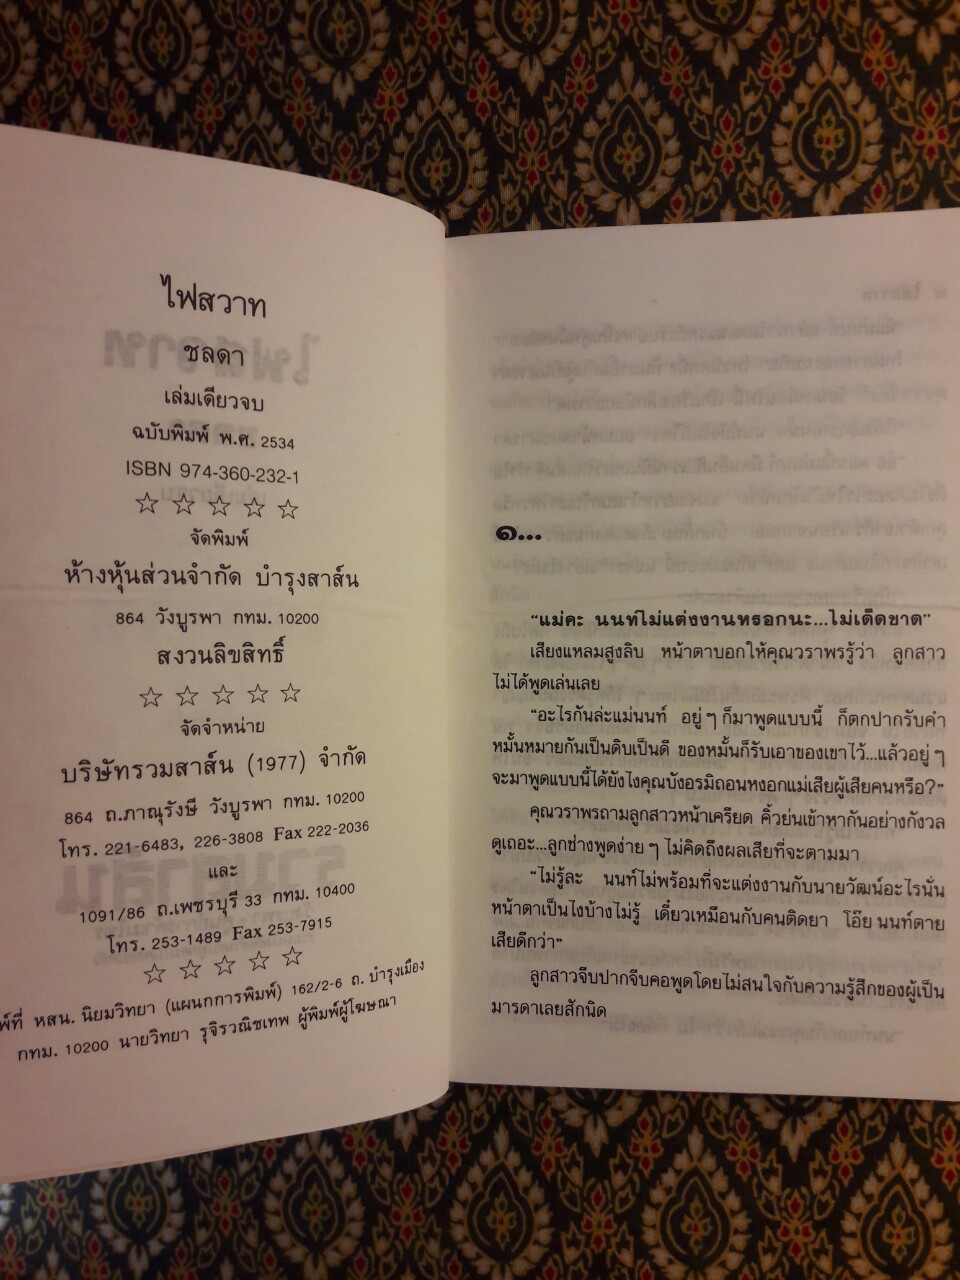 ไฟสวาท
ชลดา
เล่มเดียวจบ
ฉบับพิมพ์ พ.ศ. 2534
ISBN 974-360-232-1
☆ ☆ ☆ ☆ ☆
จัดพิมพ์
ห้างหุ้นส่วนจำกัด บำรุงสาส์น
864 วังบูรพา กทม. 10200
สงวนลิขสิทธิ์
☆ ☆ ☆ ☆ ☆
จัดจำหน่าย
บริษัทรวมสาส์น (1977) จำกัด
864 ถ.ภาณุรังษี วังบูรพา กทม. 10200
โทร. 221-6483, 226-3808 Fax 222-2036
และ
1091/86 ถ.เพชรบุรี 33 กทม. 10400
โทร. 253-1489 Fax 253-7915
☆ ☆ ☆ ☆ ☆
พ์ที่ หสน. นิยมวิทยา (แผนกการพิมพ์) 162/2-6 ถ. บำรุงเมือง
กทม. 10200 นายวิทยา รุจิรวณิชเทพ ผู้พิมพ์ผู้โฆษณา
๑...
"แม่คะ นนท์ไม่แต่งงานหรอกนะ...ไม่เด็ดขาด"
เสียงแหลมสูงลิบ หน้าตาบอกให้คุณวราพรรู้ว่า ลูกสาว
ไม่ได้พูดเล่นเลย
"อะไรกันล่ะแม่นนท์ อยู่ ๆ ก็มาพูดแบบนี้ ก็ตกปากรับคำ
หมั้นหมายกันเป็นดิบเป็นดี ของหมั้นก็รับเอาของเขาไว้...แล้วอยู่ ๆ
จะมาพูดแบบนี้ได้ยังไงคุณบังอรมิถอนหงอกแม่เสียผู้เสียคนหรือ?"
คุณวราพรถามลูกสาวหน้าเครียด คิ้วย่นเข้าหากันอย่างกังวล
ดูเถอะ...ลูกช่างพูดง่าย ๆ ไม่คิดถึงผลเสียที่จะตามมา
"ไม่รู้ละ นนท์ไม่พร้อมที่จะแต่งงานกับนายวัฒน์อะไรนั่น
หน้าตาเป็นไงบ้างไม่รู้ เดี๋ยวเหมือนกับคนติดยา โอ๊ย นนท์ตาย
เสียดีกว่า"
ลูกสาวจีบปากจีบคอพูดโดยไม่สนใจกับความรู้สึกของผู้เป็น
มารดาเลยสักนิด